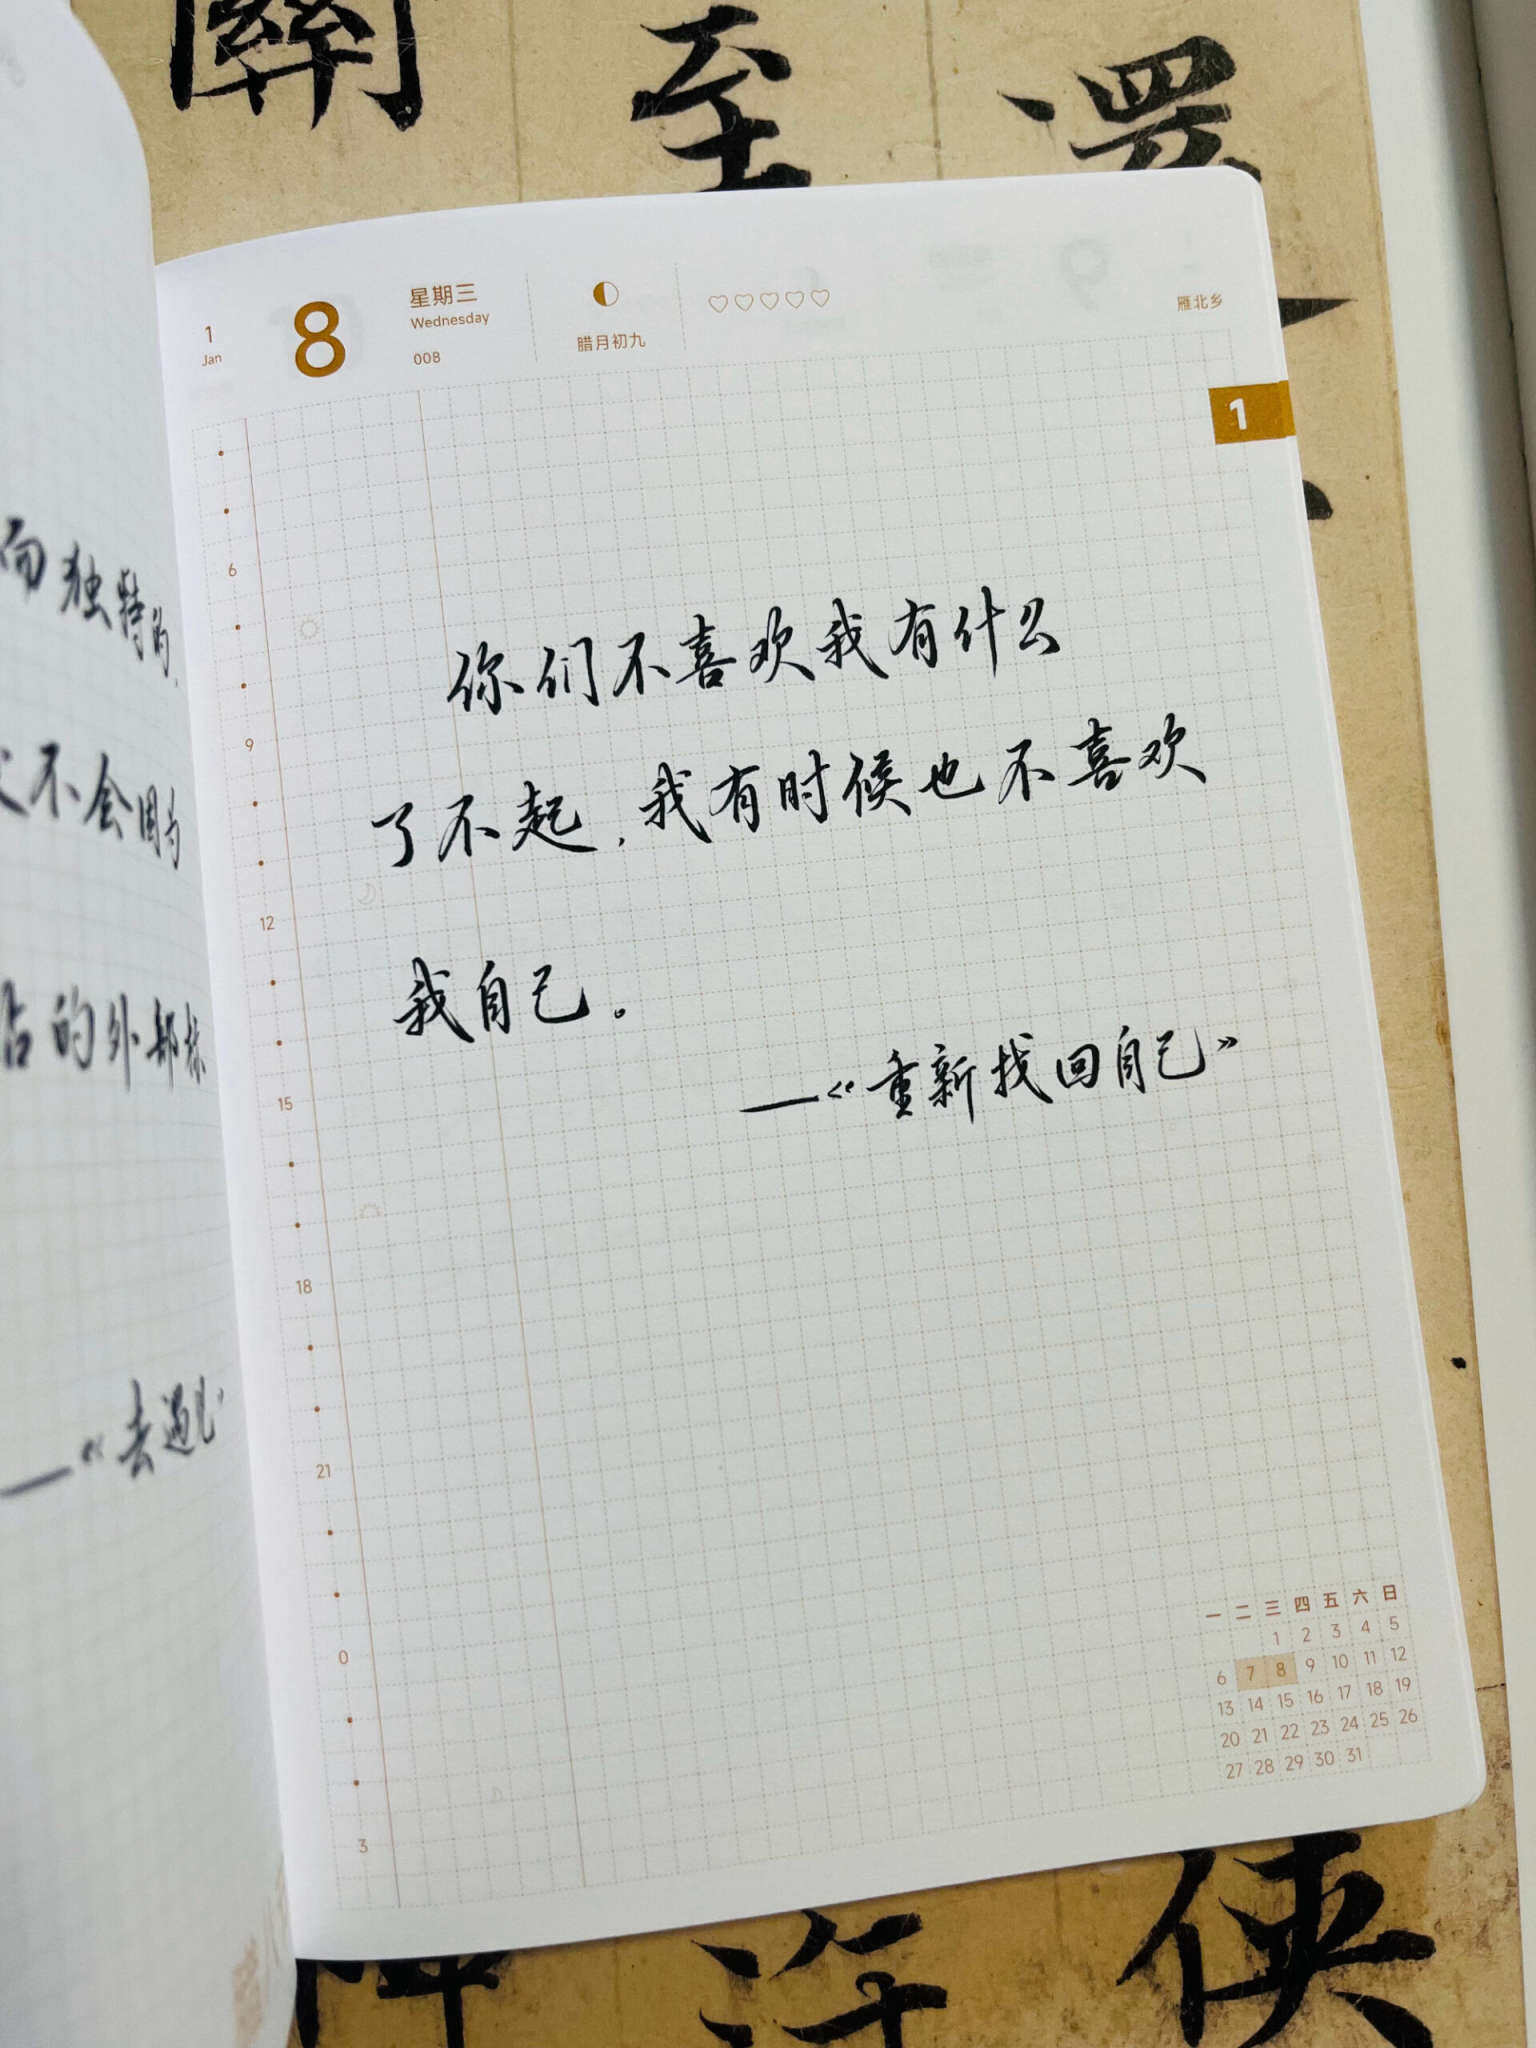 關
至
1
Jan
8
星期三
Wednesday
008
腊月初九
雁北乡
1
你们不喜欢我有什么
了不起，我有时候也不喜欢
我自己。
——《重新找回自己》
6
9
12
15
18
21
0
3
独特的
不会因为
的外部
——《去遇见
一 二 三 四 五 六 日
1 2 3 4 5
6 7 8 9 10 11 12
13 14 15 16 17 18 19
20 21 22 23 24 25 26
27 28 29 30 31
侠